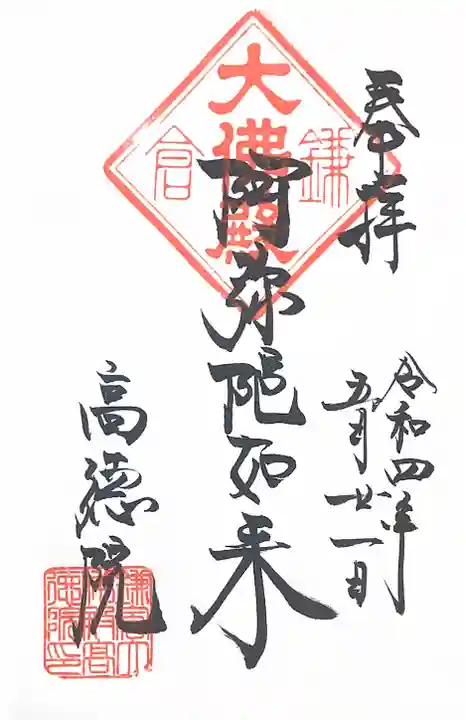 奉拝
令和四年
五月廿一日
大佛殿
鎌倉
阿弥陀如来
高徳院